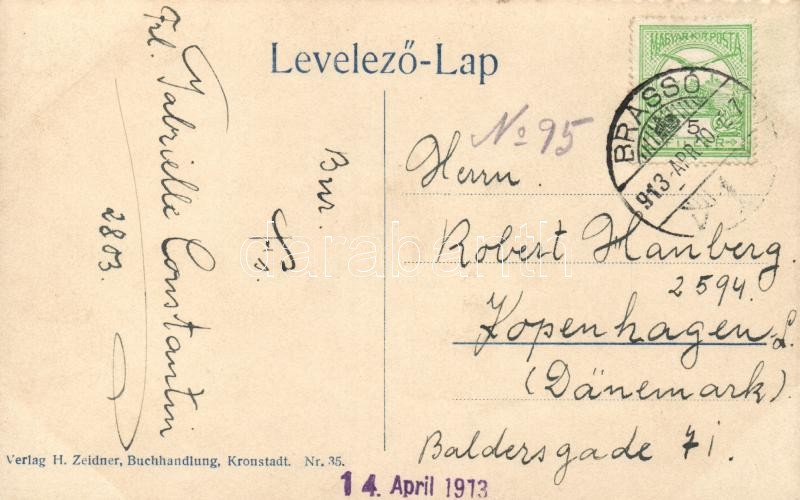 Levelező-Lap
MAGYAR KIR. POSTA
BRASSÓ
913 APR 10
5
№ 95
Herrn.
Robert Hanberg.
2594.
Kopenhagen-L.
(Dänemark)
Baldersgade 71.
Frl. Gabrielle Constantin
2803.
Bur.
darabanth
Verlag H. Zeidner, Buchhandlung, Kronstadt. Nr. 35.
14. April 1913